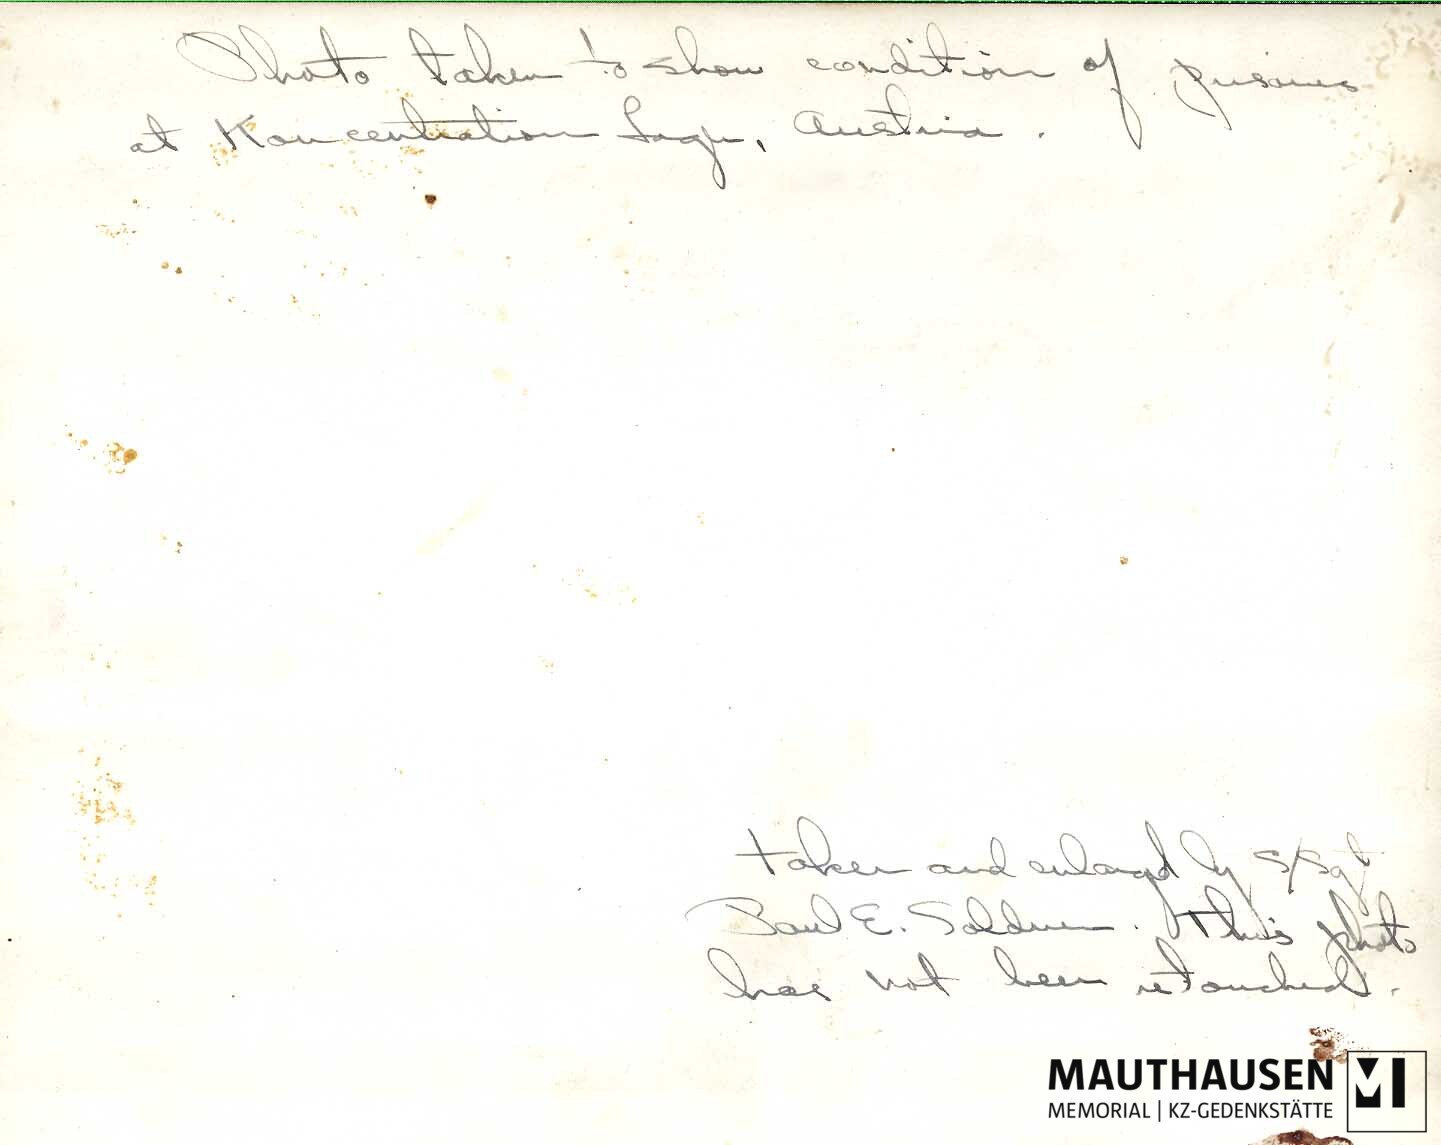 Photo taken to show condition of prisoners
at Koncentration Lager, Austria.
taken and enlarged by S/Sgt
Paul E. Soldner. This photo
has not been retouched.
MAUTHAUSEN
MEMORIAL | KZ-GEDENKSTÄTTE